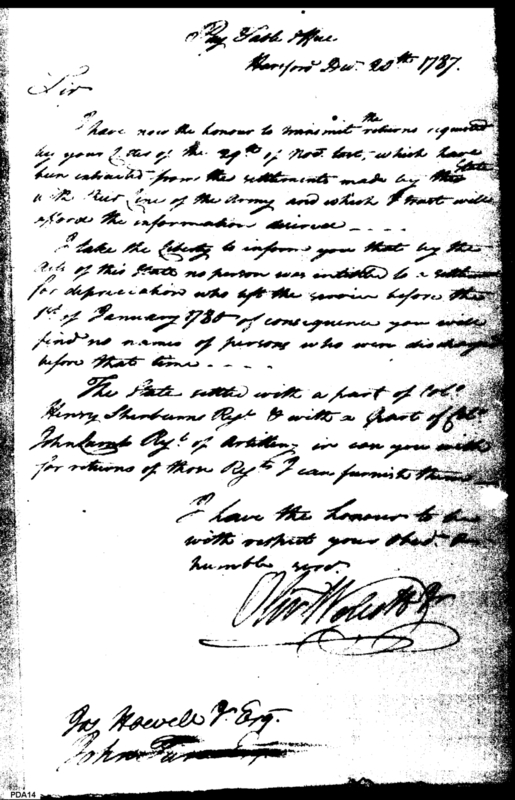 Pay Table Office
Hartford Decr. 20th 1787.
Sir
I have now the honour to transmit the returns requested
by your Letter of the 29th of Novr. last, which have
been extracted from the settlements made by this State
with their Line of the Army and which I trust will
afford the information desired
I take the Liberty to inform you that by the
Acts of this State no person was intitled to a settlement
for depreciation who left the service before the
1st of January 1780 of consequence you will
find no names of persons who were discharged
before that time
The State settled with a part of Colo.
Henry Sherburns Regt. & with a part of Colo.
John Lamb Regt. of Artillery, in case you wish
for returns of those Regts. I can furnish them
I have the honour to be
with respect your Obedt.
humble servt.
Olivr. Wolcott Jr
Jos Howell Jr. Esq.
John
PDA14